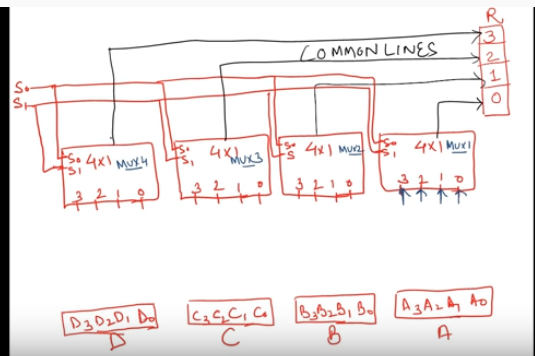 R
3
COMMON LINES
2
1
0
S0
S1
S0 4x1 MUX4
S1
3 2 1 0
S0 4x1
S1 MUX3
3 2 1 0
S0 4x1 MUX2
S
3 2 1 0
S0 4x1 MUX1
S1
3 2 1 0
D3D2D1 D0
D
C3C2C1 C0
C
B3B2B1 B0
B
A3A2A1 A0
A